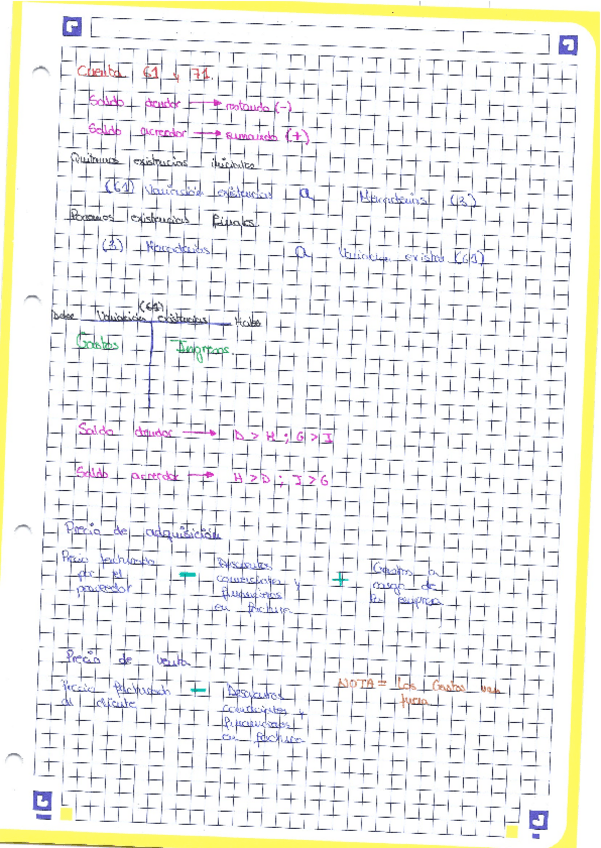 Cuenta 61 y 71.
Saldo deudor → restando (-)
Saldo acreedor → sumando (+)
Quitamos existencias iniciales
(61) Variación existencias a Mercaderías (3)
Ponemos existencias finales
(3) Mercaderías a Variación existen (61)
(61)
Debe Variación existencias Haber
Gastos Ingresos
Saldo deudor → D > H ; G > I
Saldo acreedor → H > D ; I > G
Precio de adquisición
Precio facturado - Descuentos + Gastos a
por el comerciales y cargo de
proveedor financieros la empresa
en factura
Precio de venta
Precio facturado - Descuentos NOTA = Los Gastos van
al cliente comerciales y fuera
financieros
en factura